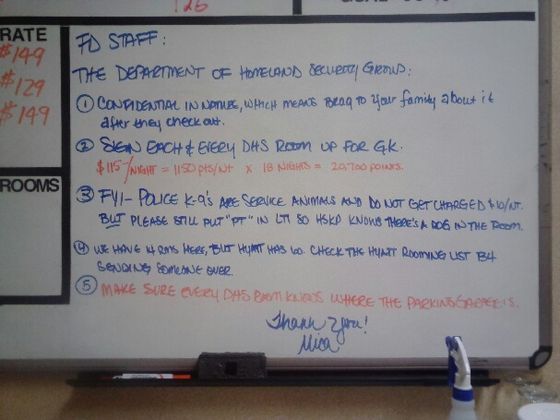 RATE
$149
$129
$149
ROOMS
126
FD STAFF:
THE DEPARTMENT OF HOMELAND SECURITY GROUP:
① CONFIDENTIAL IN NATURE, WHICH MEANS BRAG TO your family about it
after they check out.
② SIGN EACH & EVERY DHS ROOM UP FOR GK.
$115/NIGHT = 1150 pts/NT x 18 NIGHTS = 20,700 POINTS.
③ FYI - POLICE K-9's ARE SERVICE ANIMALS AND DO NOT GET CHARGED $10/NT.
BUT PLEASE STILL PUT "PT" IN LTI SO HSKP KNOWS THERE'S A DOG IN THE ROOM.
④ WE HAVE 14 RMS HERE, BUT HYATT HAS 60. CHECK THE HYATT ROOMING LIST B4
SENDING SOMEONE OVER.
⑤ MAKE SURE EVERY DHS ROOM KNOWS WHERE THE PARKING GARAGE IS.
Thank you!
Mica